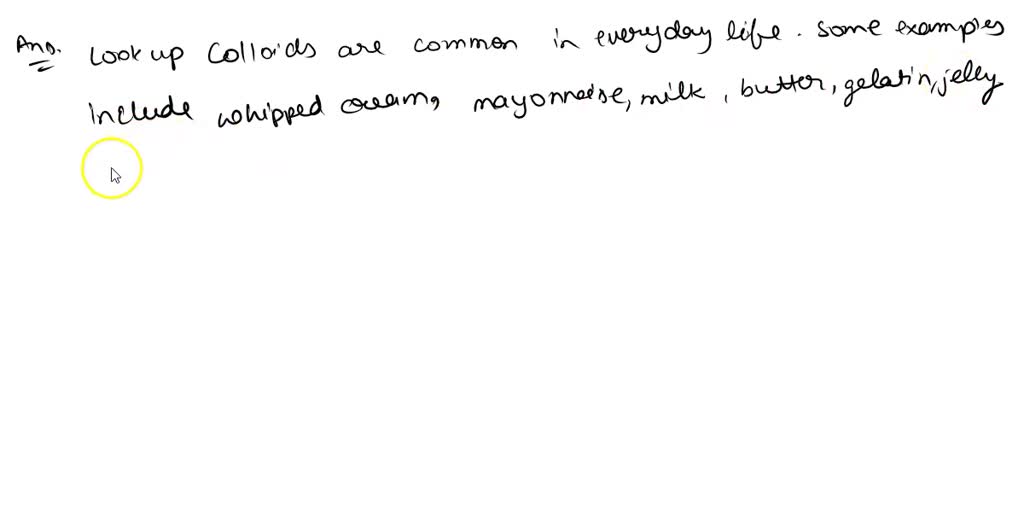 Ans. Look up Colloids are common in everyday life. Some examples
include whipped cream, mayonnaise, milk, butter, gelatin, jelly